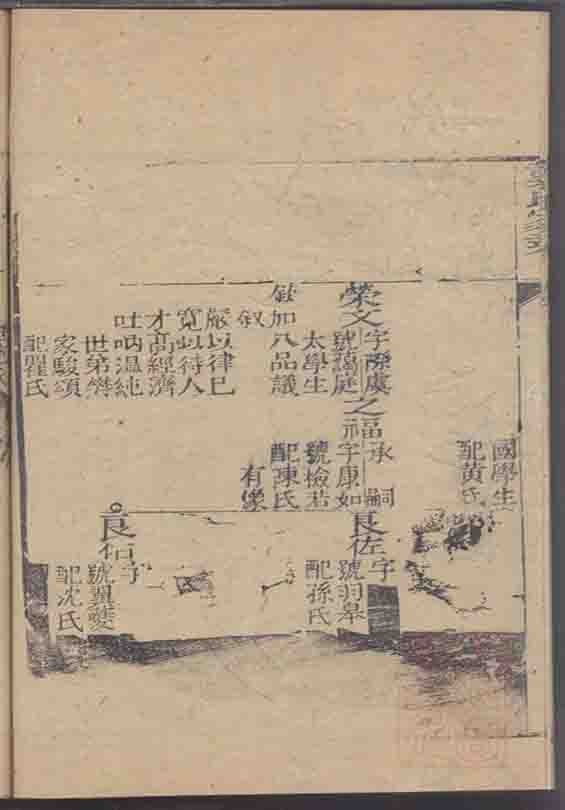 國學生
配黄氏
榮文字際虞
號藹庭
太學生
敘加八品議
叙
嚴以律已
寬以待人
才高經濟
吐吶温純
世第欒
家駿頌
配瞿氏
之福承嗣
字康如
號檢若
配陳氏
有像
良佐字
號羽皋
配孫氏
良佑字
號翼夔
配沈氏